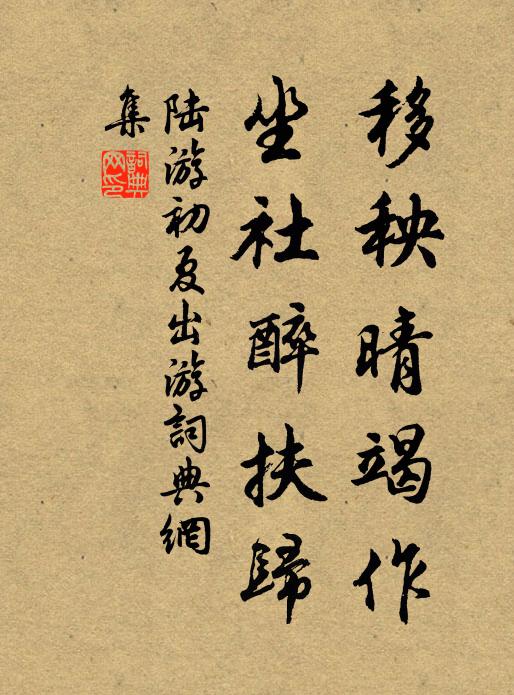 移秧晴竭作
坐社醉扶歸
陆游初夏出游詞典網
集
詞典
网印